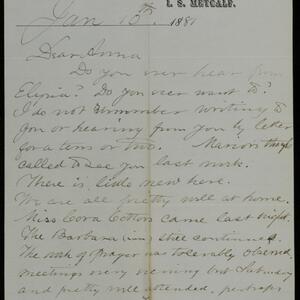 I. S. METCALF.
Jan 15th 1881
Dear Anna
Do you ever hear from
Elyria? Do you ever want to?
I do not remember writing to
you or hearing from you by letter
for a term or two. Marion
called to see you last week.
There is little new here.
We are all pretty well at home.
Miss Cora Cotton came last night.
The Barbara still continues.
The week of prayer was observed,
meetings every evening but Saturday
and pretty well attended, perhaps